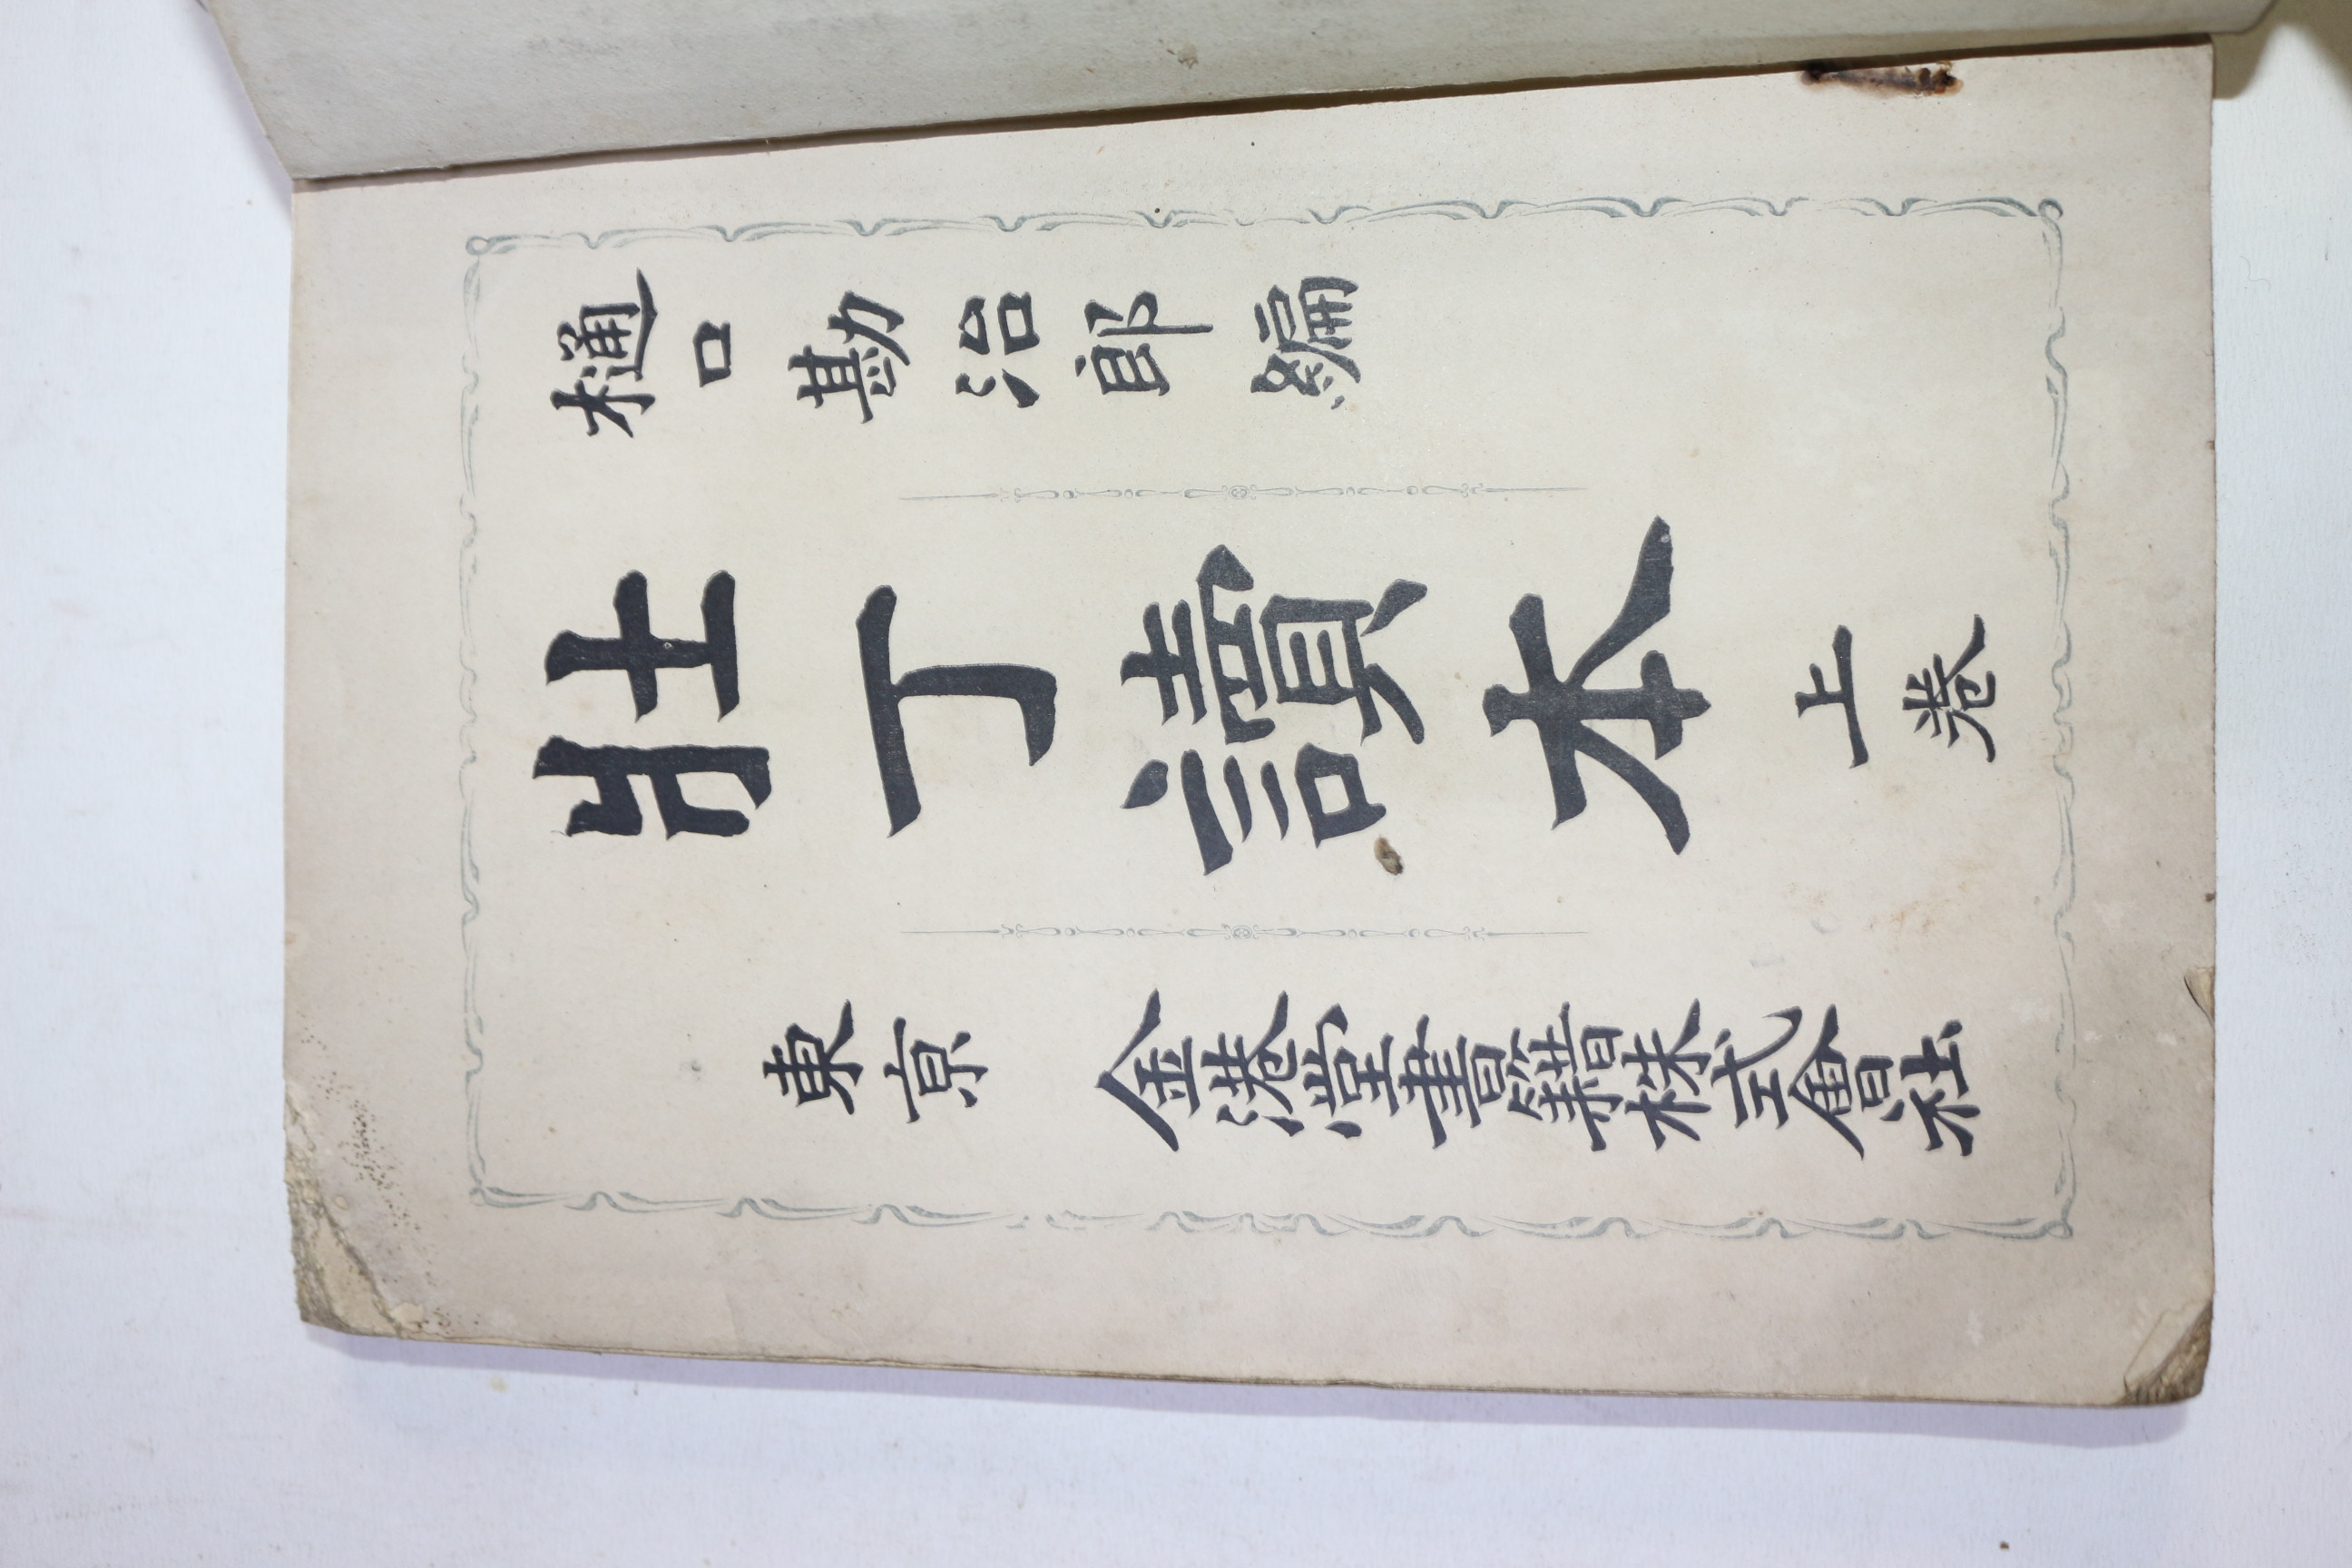 樋口勘治郎編
壯丁讀本 上卷
東京 金港堂書籍株式會社